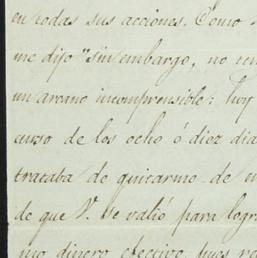 en todas sus acciones. Como
me dijo "sin embargo, no
un arcano incomprensible: hoy
curso de los ocho ó diez dia
trataba de quitarme de
de que V. se valió para logra
mo dinero efectivo pues